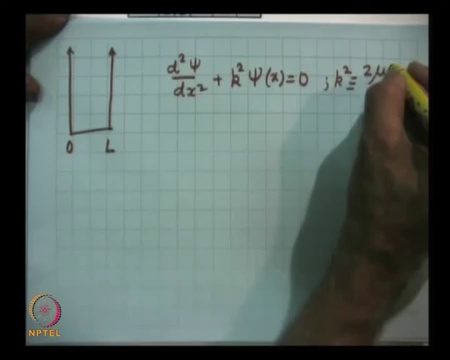 d²Ψ/dx² + k²Ψ(x)=0 ; k² = 2μ
O L
NPTEL